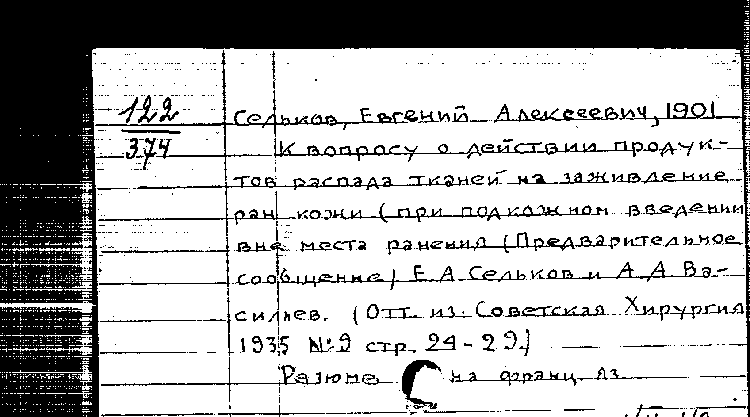 122
374
Сельков, Евгений Алексеевич, 1901
К вопросу о действии продук-
тов распада тканей на заживление
ран кожи (при подкожном введении
вне места ранения (Предварительное
сообщение) Е.А. Сельков и А.А. Ва-
сильев. (Отт. из. Советская Хирургия
1935 №9 стр. 24-29.)
Резюме на франц. яз.